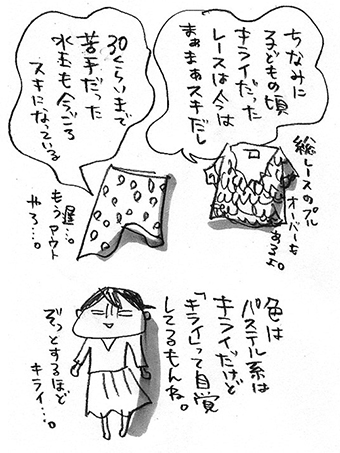 ちなみに
子どもの頃
キライだった
レースは今は
まぁまぁスキだし
総レースのプル
オーバーも
あるよ。
30くらいまで
苦手だった
水玉も今ごろ
スキになっている
遅…。
もうアウト
やろ…。
色は
パステル系は
キライだけど
「キライ」って自覚
してるもんね。
ぞっとするほど
キライ…。